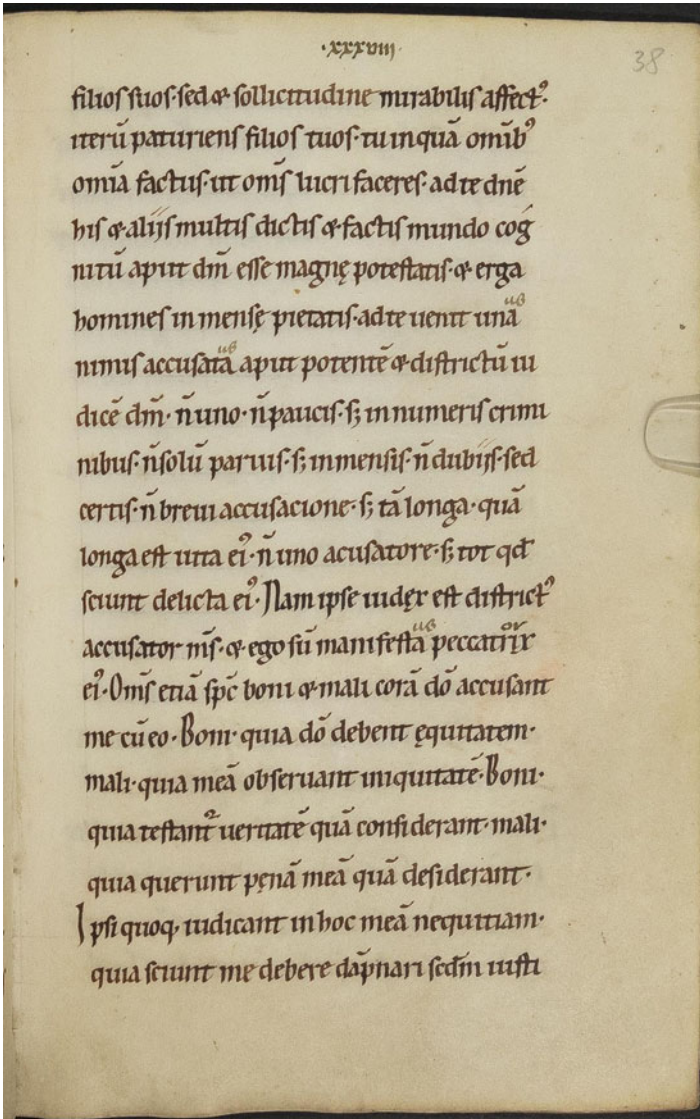 ·xxxviii·
38
filios suos·sed & sollicitudine mirabilis affect᷒·
iterū paturiens filios tuos·tu inquā omīb᷒
omīa factus·ut om̄s lucri faceres·ad te dn̄e
his & aliis multis dictis & factis mundo cog
nitū aput dm̄ esse magnę potestatis·& erga
homines in mensę pietatis·ad te uenit unā
us
nimis accusatā aput potentē & districtū iu
us
dicē dm̄·n̄ uno·n̄ paucis·s; in numeris crimi
nibus·n̄ solū paruis·s; inmensis·n̄ dubiis·sed
certis·n̄ breui accusacione·s; tā longa·quā
longa est uita ei᷒·n̄ uno acusatore·s; tot qđ
sciunt delicta ei᷒·Nam ipse iudęx est district᷒
accusator m̄s·& ego sū manifestā peccatrix
us or
ei᷒·Om̄s etiā sp̄c boni & mali corā dō accusant
me cū eo·Boni·quia dō debent ęquitatem·
mali·quia meā obseruant iniquitatē·Boni·
quia testant᷑ ueritatē quā considerant·mali·
quia querunt pęnā meā quā desiderant·
Ipsi quoq, iudicant in hoc meā nequitiam·
quia sciunt me debere dāpnari scdm̄ iusti